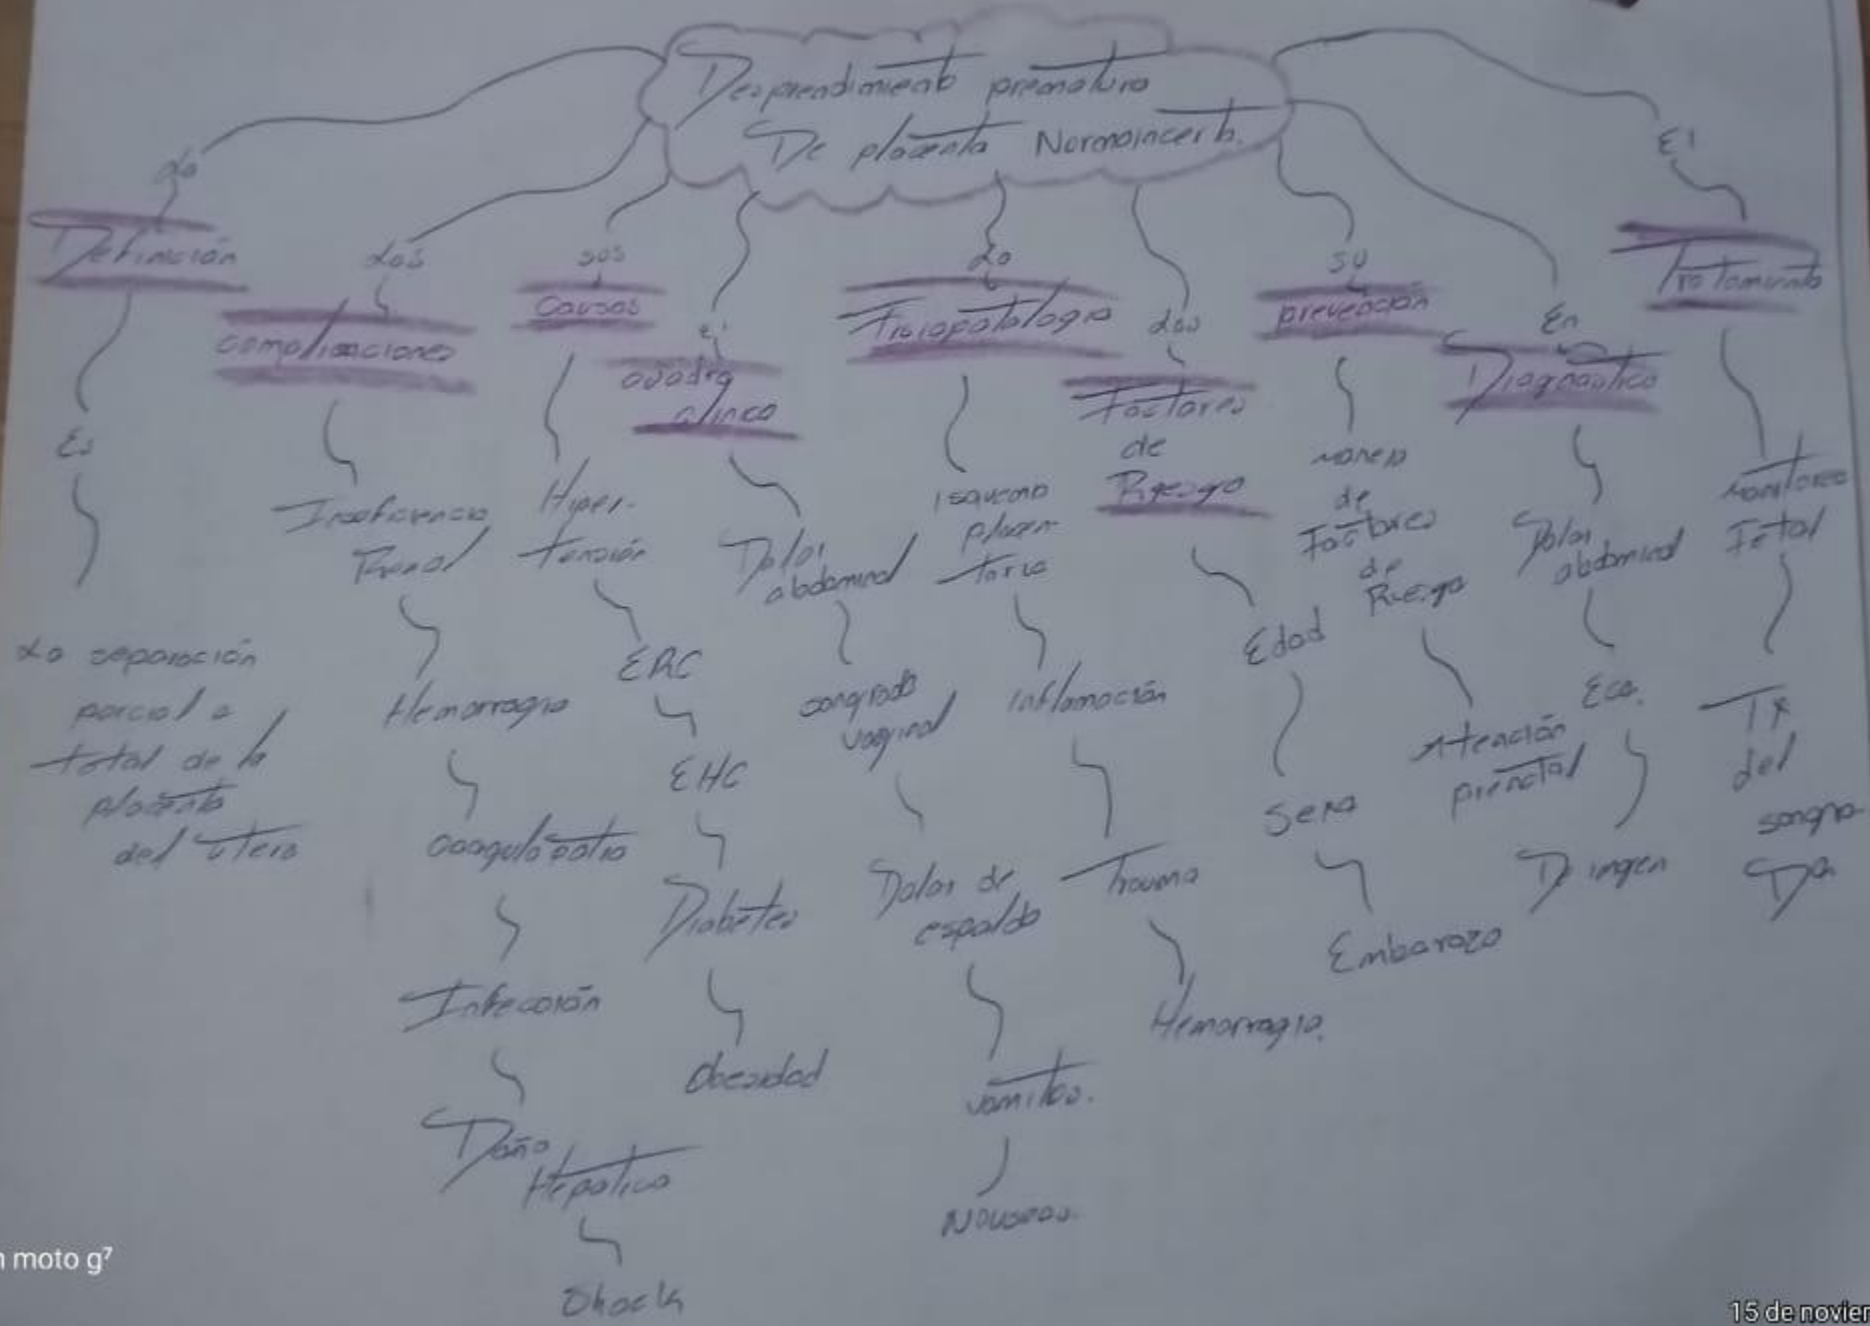 Desprendimiento prematuro
De placenta Normoincert.
La
Definición
Es
La separación
parcial o
total de la
placenta
del utero
Las
complicaciones
Insuficiencia
Renal
Hemorragia
Coagulopatia
Infección
Daño
Hepatico
Shock
sus
causas
Hiper-
tensión
ERC
EHC
Diabetes
Obesidad
El
cuadro
clinico
Dolor
abdominal
sangrado
vaginal
Dolor de
espalda
vomitos.
Nauseas.
La
Fisiopatologia
isquemia
placen
taria
Inflamación
Trauma
Hemorragia.
Los
Factores
de
Riesgo
Edad
Sexo
Embarazo
su
prevención
manejo
de
Factores
de
Riesgo
Atención
prenatal
En
Diagnostico
Dolor
abdominal
Eco.
El
Tratamiento
monitoreo
Fetal
TX
del
sangra
n moto g⁷
15 de noviem